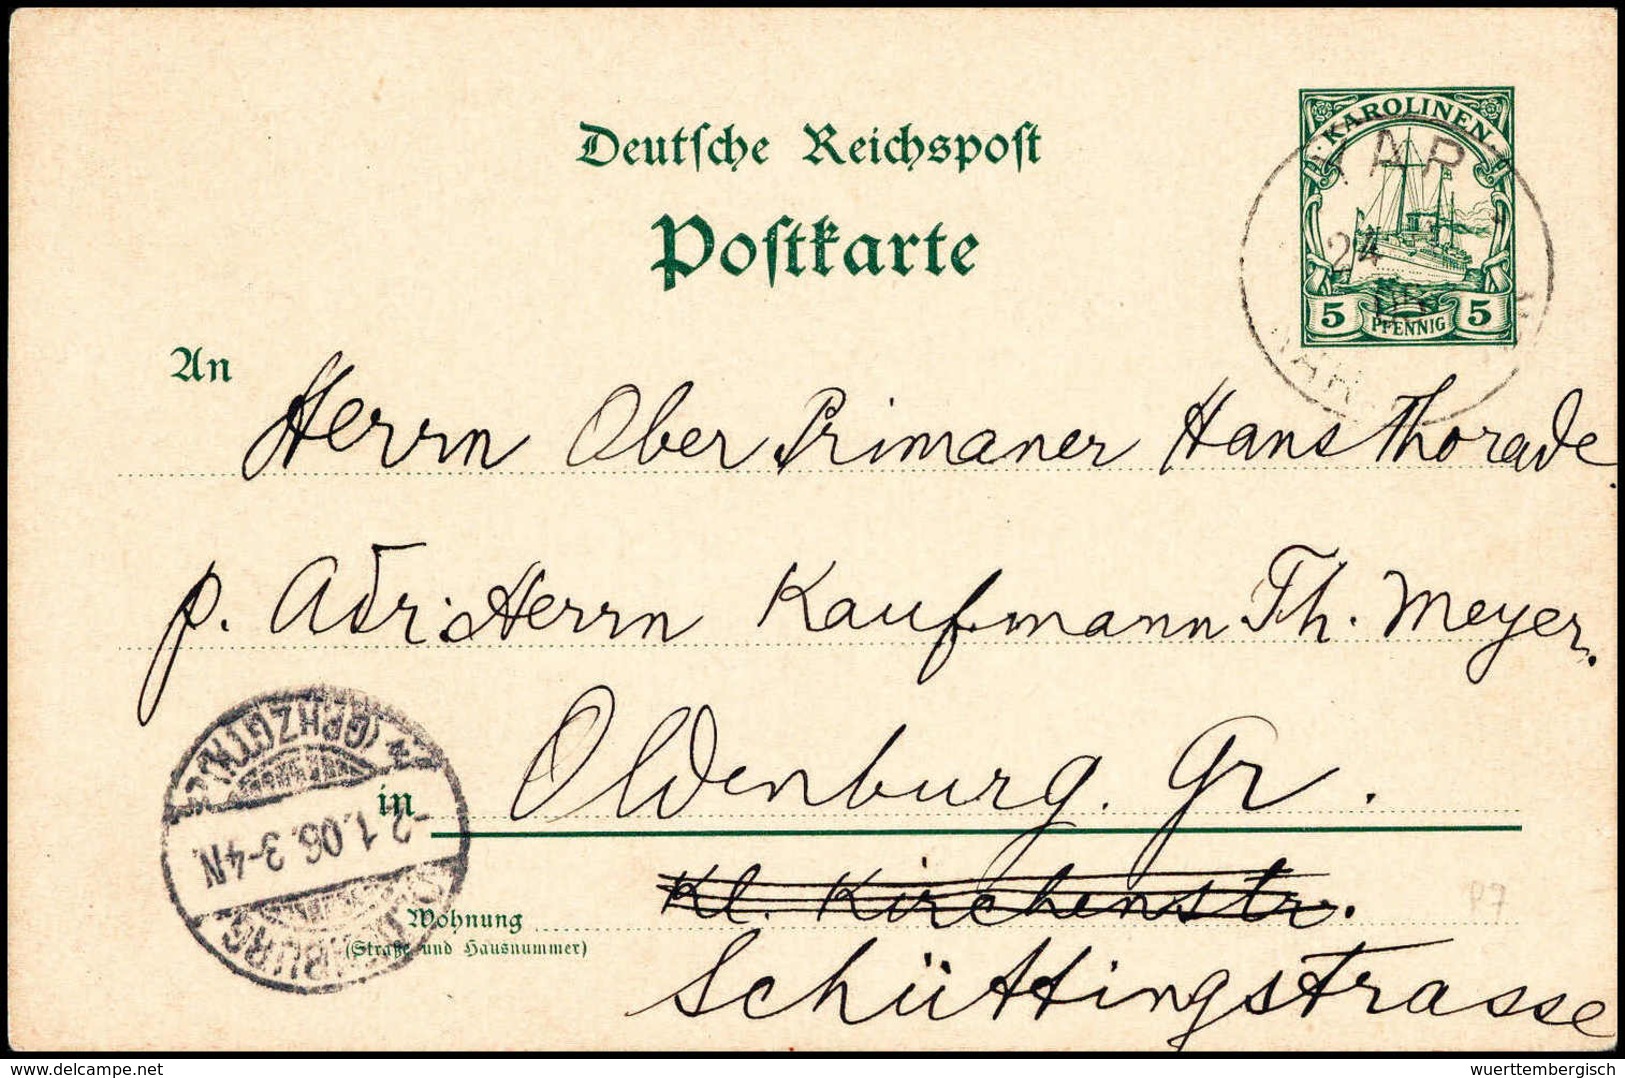 Deutsche Reichspost
Postkarte
KAROLINEN
5 PFENNIG 5
YAP
24
An Herrn Ober Primaner Hans Thorade.
p. Adr: Herrn Kaufmann Th. Meyer.
in Oldenburg. Gr.
Kl. Kirchenstr.
Wohnung
(Straße und Hausnummer)
Schüttingstrasse
OLDENBURG
-2.1.06.3-4N.
(GRHZGTM.)
P7
delcampe.net
wuerttembergisch